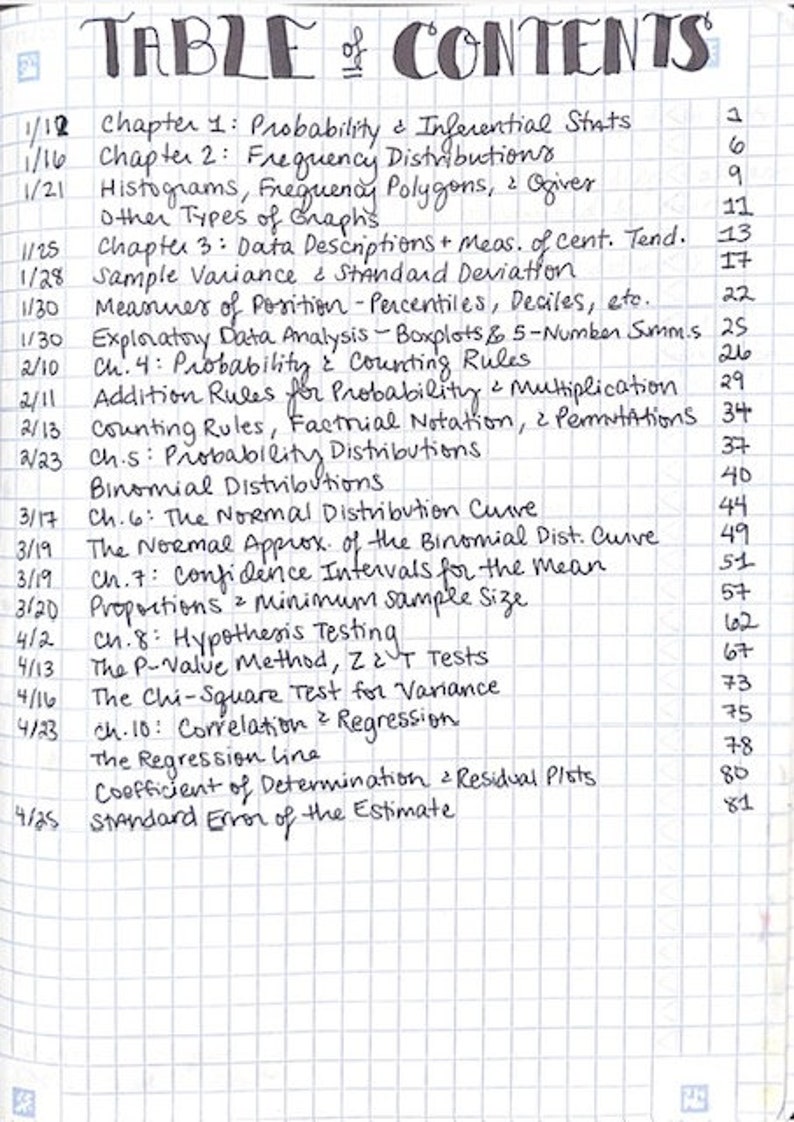 TABLE of CONTENTS
1/12 Chapter 1: Probability & Inferential Stats 1
1/16 Chapter 2: Frequency Distributions 6
1/21 Histograms, Frequency Polygons, & Ogives 9
Other Types of Graphs 11
1/25 Chapter 3: Data Descriptions + Meas. of Cent. Tend. 13
1/28 Sample Variance & Standard Deviation 17
1/30 Measures of Position - Percentiles, Deciles, etc. 22
1/30 Exploratory Data Analysis - Boxplots & 5-Number Summ.s 25
2/10 Ch. 4: Probability & Counting Rules 26
2/11 Addition Rules for Probability & Multiplication 29
2/13 Counting Rules, Factorial Notation, & Permutations 34
2/23 Ch.5: Probability Distributions 37
Binomial Distributions 40
3/17 Ch. 6: The Normal Distribution Curve 44
3/19 The Normal Approx. of the Binomial Dist. Curve 49
3/19 Ch. 7: Confidence Intervals for the Mean 51
3/20 Proportions & Minimum Sample Size 57
4/2 Ch. 8: Hypothesis Testing 62
4/13 The P-Value Method, Z & T Tests 67
4/16 The Chi-Square Test for Variance 73
4/23 Ch. 10: Correlation & Regression 75
The Regression Line 78
Coefficient of Determination & Residual Plots 80
4/25 Standard Error of the Estimate 81